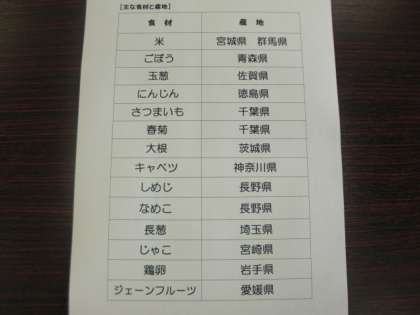 [主な食材と産地]
食材 産地
米 宮城県 群馬県
ごぼう 青森県
玉葱 佐賀県
にんじん 徳島県
さつまいも 千葉県
春菊 千葉県
大根 茨城県
キャベツ 神奈川県
しめじ 長野県
なめこ 長野県
長葱 埼玉県
じゃこ 宮崎県
鶏卵 岩手県
ジェーンフルーツ 愛媛県